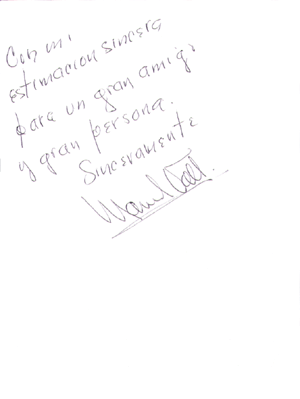 Con mi
estimacion sincera
para un gran amigo
y gran persona.
Sinceramente